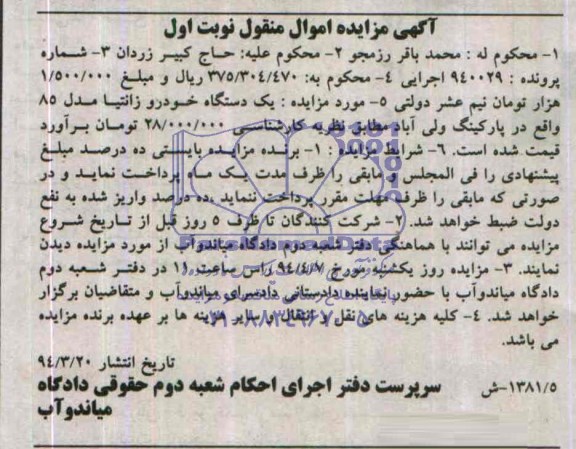 آگهی مزایده اموال منقول نوبت اول
۱- محکوم له : محمد باقر رزمجو ۲- محکوم علیه: حاج کبیر زردان ۳- شماره
پرونده : ۹۴۰۰۲۹ اجرایی ۴- محکوم به: ۳۷۵/۳۰۴/۴۷۰ ریال و مبلغ ۱/۵۰۰/۰۰۰
هزار تومان نیم عشر دولتی ۵- مورد مزایده : یک دستگاه خودرو زانتیا مدل ۸۵
واقع در پارکینگ ولی آباد مطابق نظریه کارشناسی ۲۸/۰۰۰/۰۰۰ تومان برآورد
قیمت شده است. ۶- شرایط مزایده : ۱- برنده مزایده بایستی ده درصد مبلغ
پیشنهادی را فی المجلس و مابقی را ظرف مدت یک ماه پرداخت نماید و در
صورتی که مابقی را ظرف مهلت مقرر پرداخت ننماید ده درصد واریز شده به نفع
دولت ضبط خواهد شد. ۲- شرکت کنندگان تا ظرف ۵ روز قبل از تاریخ شروع
مزایده می توانند با هماهنگی دفتر شعبه دوم دادگاه میاندوآب از مورد مزایده دیدن
نمایند. ۳- مزایده روز یکشنبه مورخ ۹۴/۴/۷ راس ساعت ۱۱ در دفتر شعبه دوم
دادگاه میاندوآب با حضور نماینده دادستانی دادسرای میاندوآب و متقاضیان برگزار
خواهد شد. ۴- کلیه هزینه های نقل و انتقال و سایر هزینه ها بر عهده برنده مزایده
می باشد.
تاریخ انتشار ۹۴/۳/۲۰
۱۳۸۱/۵-ش سرپرست دفتر اجرای احکام شعبه دوم حقوقی دادگاه
میاندوآب